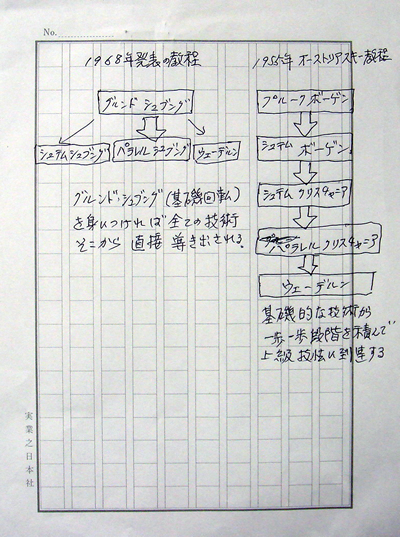 No.
1968年発表の教程
グルンド シュブング
シュテムシュブング
パラレル シュブング
ウェーデルン
グルンド・シュブング(基礎回転)
を身につければ全ての技術
そこから 直接 導き出される.
1955年 オーストリアスキー教程
プルーク ボーゲン
シュテム ボーゲン
シュテム クリスチャニア
パラレル クリスチャニア
ウェーデルン
基礎的な技術から
一歩一歩段階を積んで
上級技術に到達する
実業之日本社